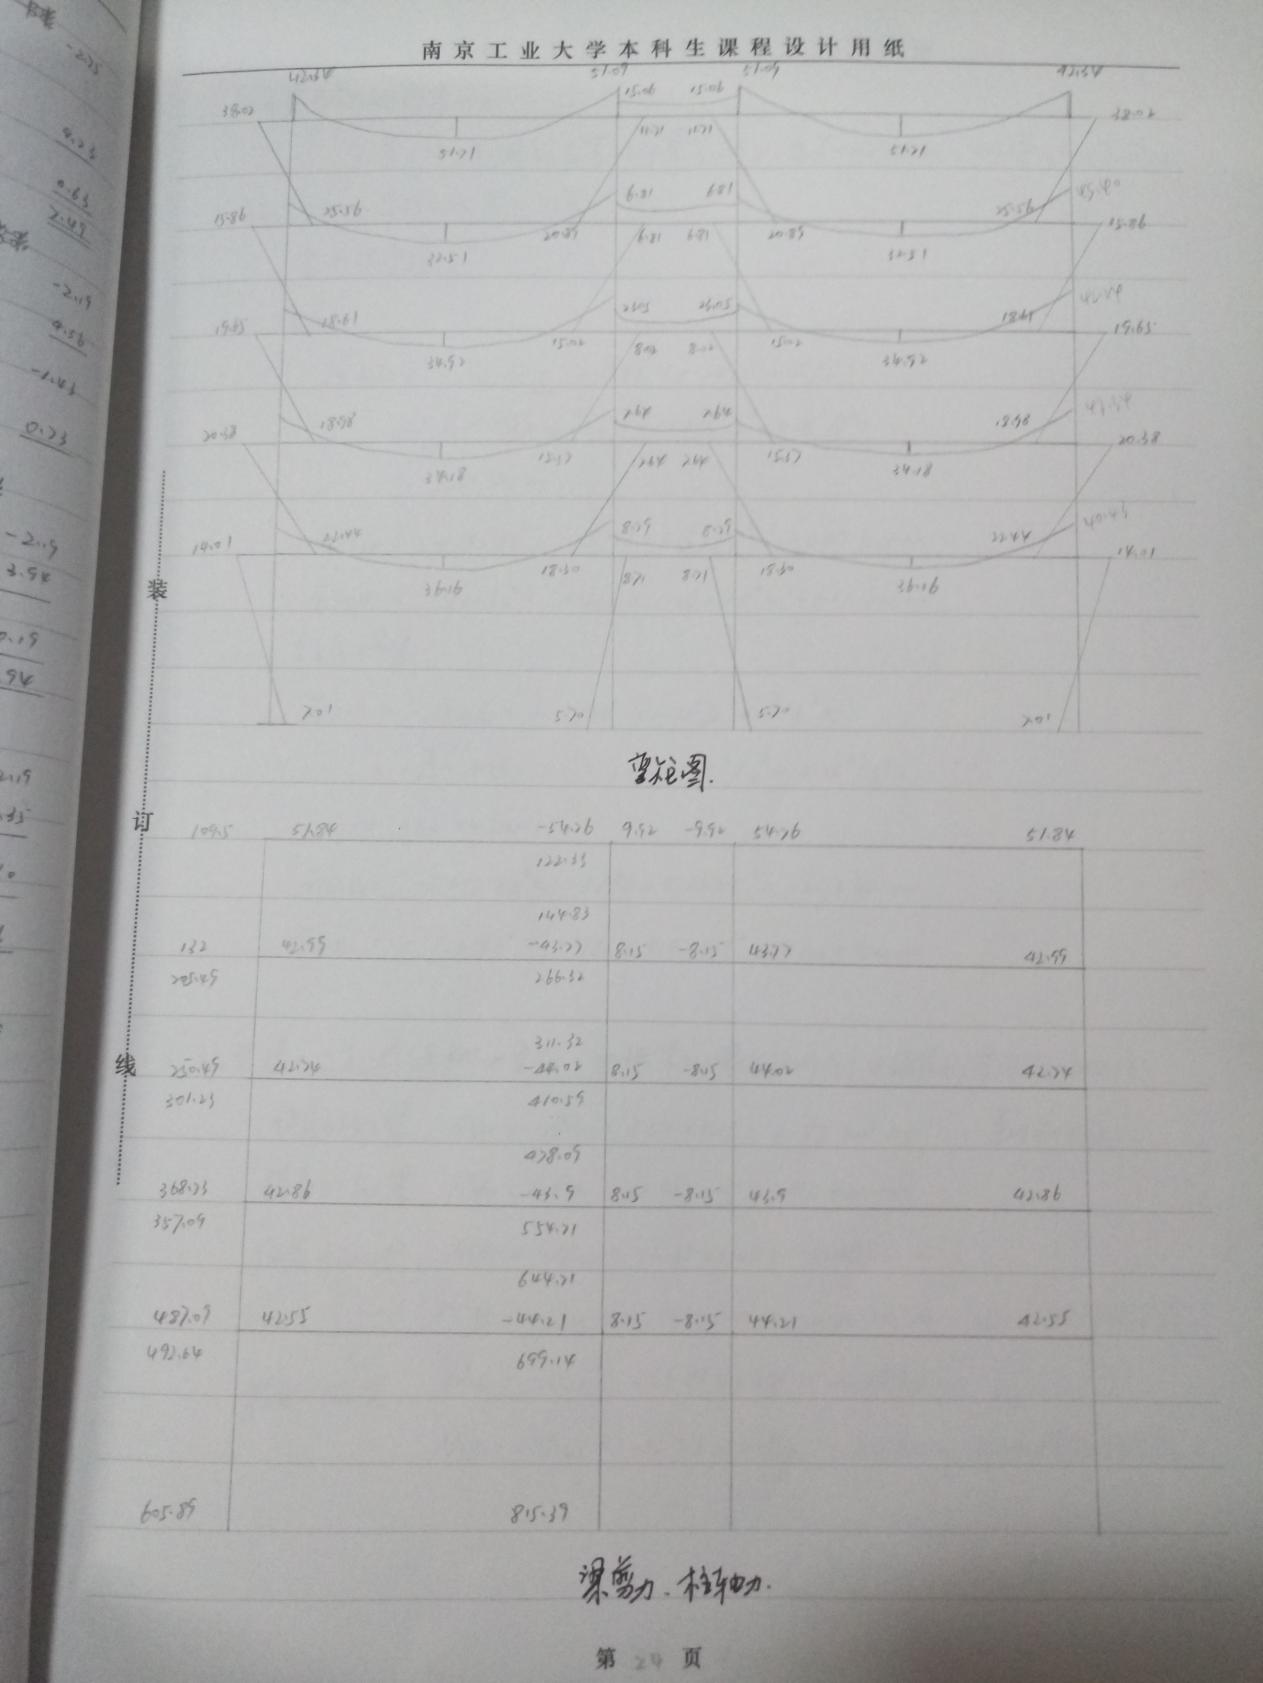 南京工业大学本科生课程设计用纸
42.34 51.09 51.09 42.34
38.02 15.06 15.06 38.02
11.21 11.21
51.71 51.71
25.56 6.81 6.81 25.56 45.40
15.86 20.89 6.81 6.81 20.89 15.86
32.51 32.51
18.61 23.05 23.05 18.61
19.65 15.02 8.02 8.02 15.02 19.65
34.92 34.92
18.98 7.64 7.64 18.98
20.38 15.57 7.64 7.64 15.57 20.38
34.18 34.18
22.44 8.79 8.79 22.44 40.43
14.01 18.30 8.71 8.71 18.30 14.01
36.16 36.16
7.01 5.70 5.70 7.01
弯矩图.
109.5 51.84 -54.26 9.92 -9.92 54.26 51.84
122.33
144.83
132 42.99 -43.77 8.15 -8.15 43.77 42.99
205.49 266.32
311.32
250.49 42.74 -44.02 8.15 -8.15 44.02 42.74
301.23 410.59
478.09
368.73 42.86 -43.9 8.15 -8.15 43.9 42.86
357.09 554.21
644.21
487.09 42.55 -44.21 8.15 -8.15 44.21 42.55
492.64 699.14
605.89 815.39
梁剪力、柱轴力.
第 24 页
装
订
线
-2.25
4.23
0.63
7.49
-2.19
4.56
-1.43
0.23
-2.19
3.94